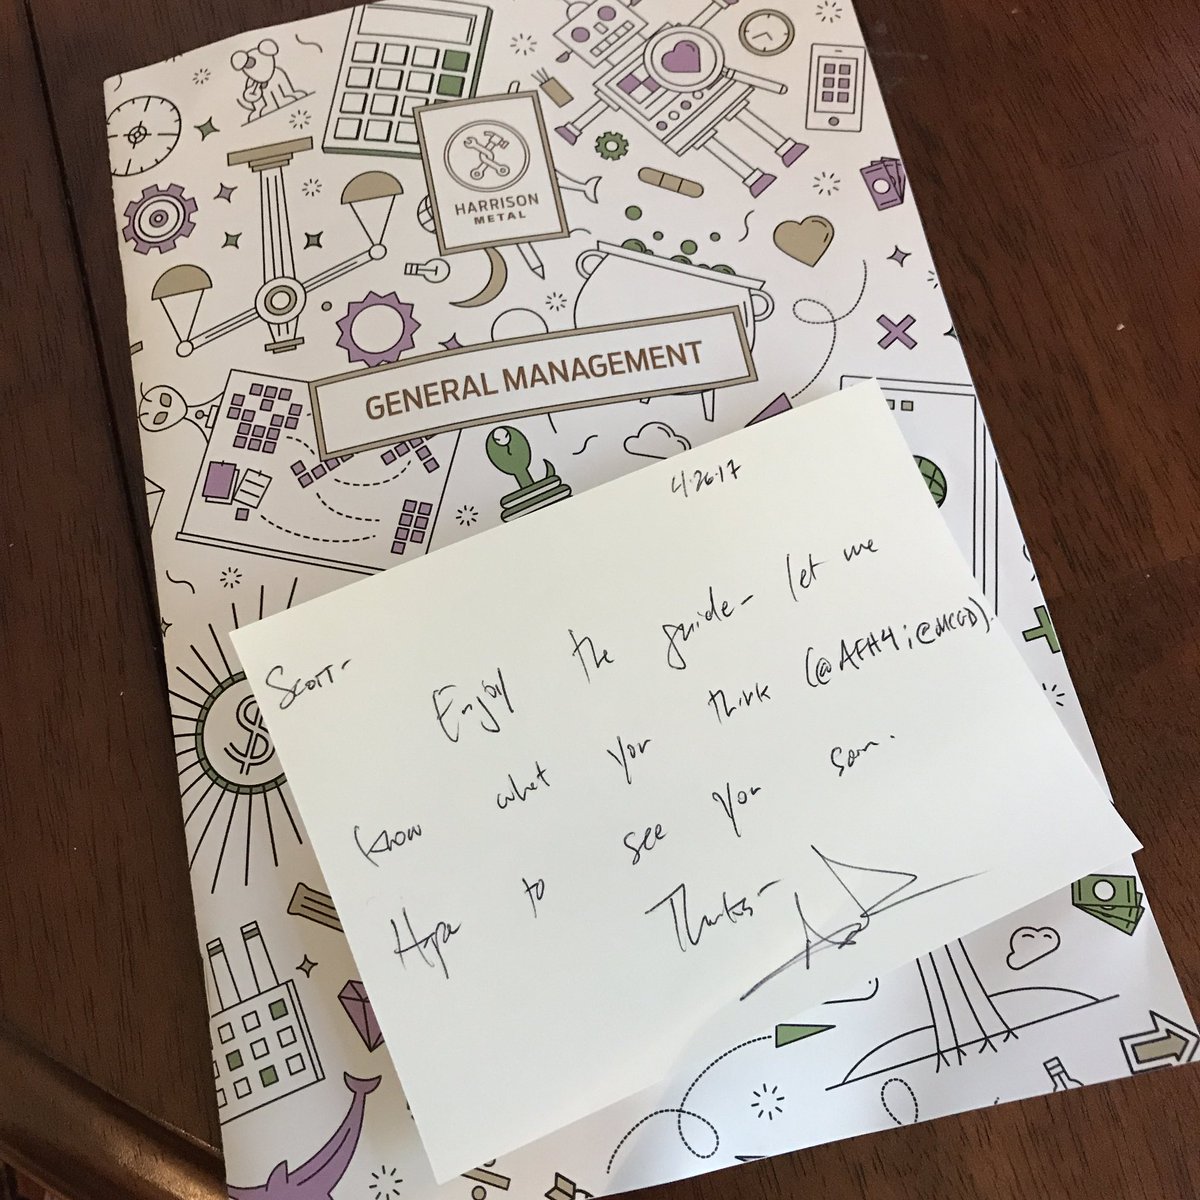 HARRISON
METAL
GENERAL MANAGEMENT
4.26.17
Scott-
Enjoy the guide- let me
know what you think (@AFH4; @MCGD).
Hope to see you soon.
Thanks-